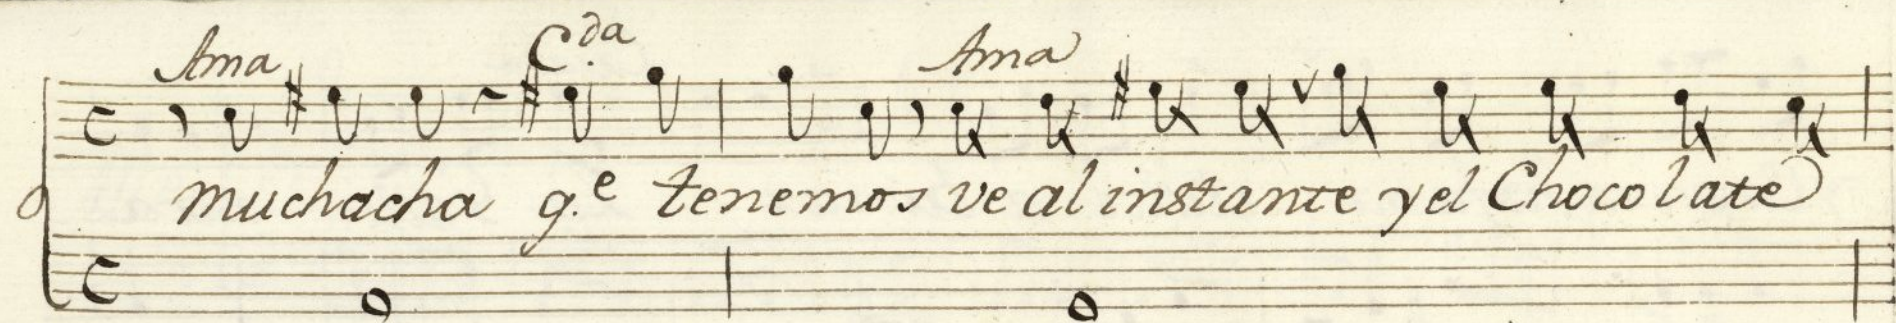 Ama C.da Ama
muchacha q.e tenemos ve al instante y el Chocolate